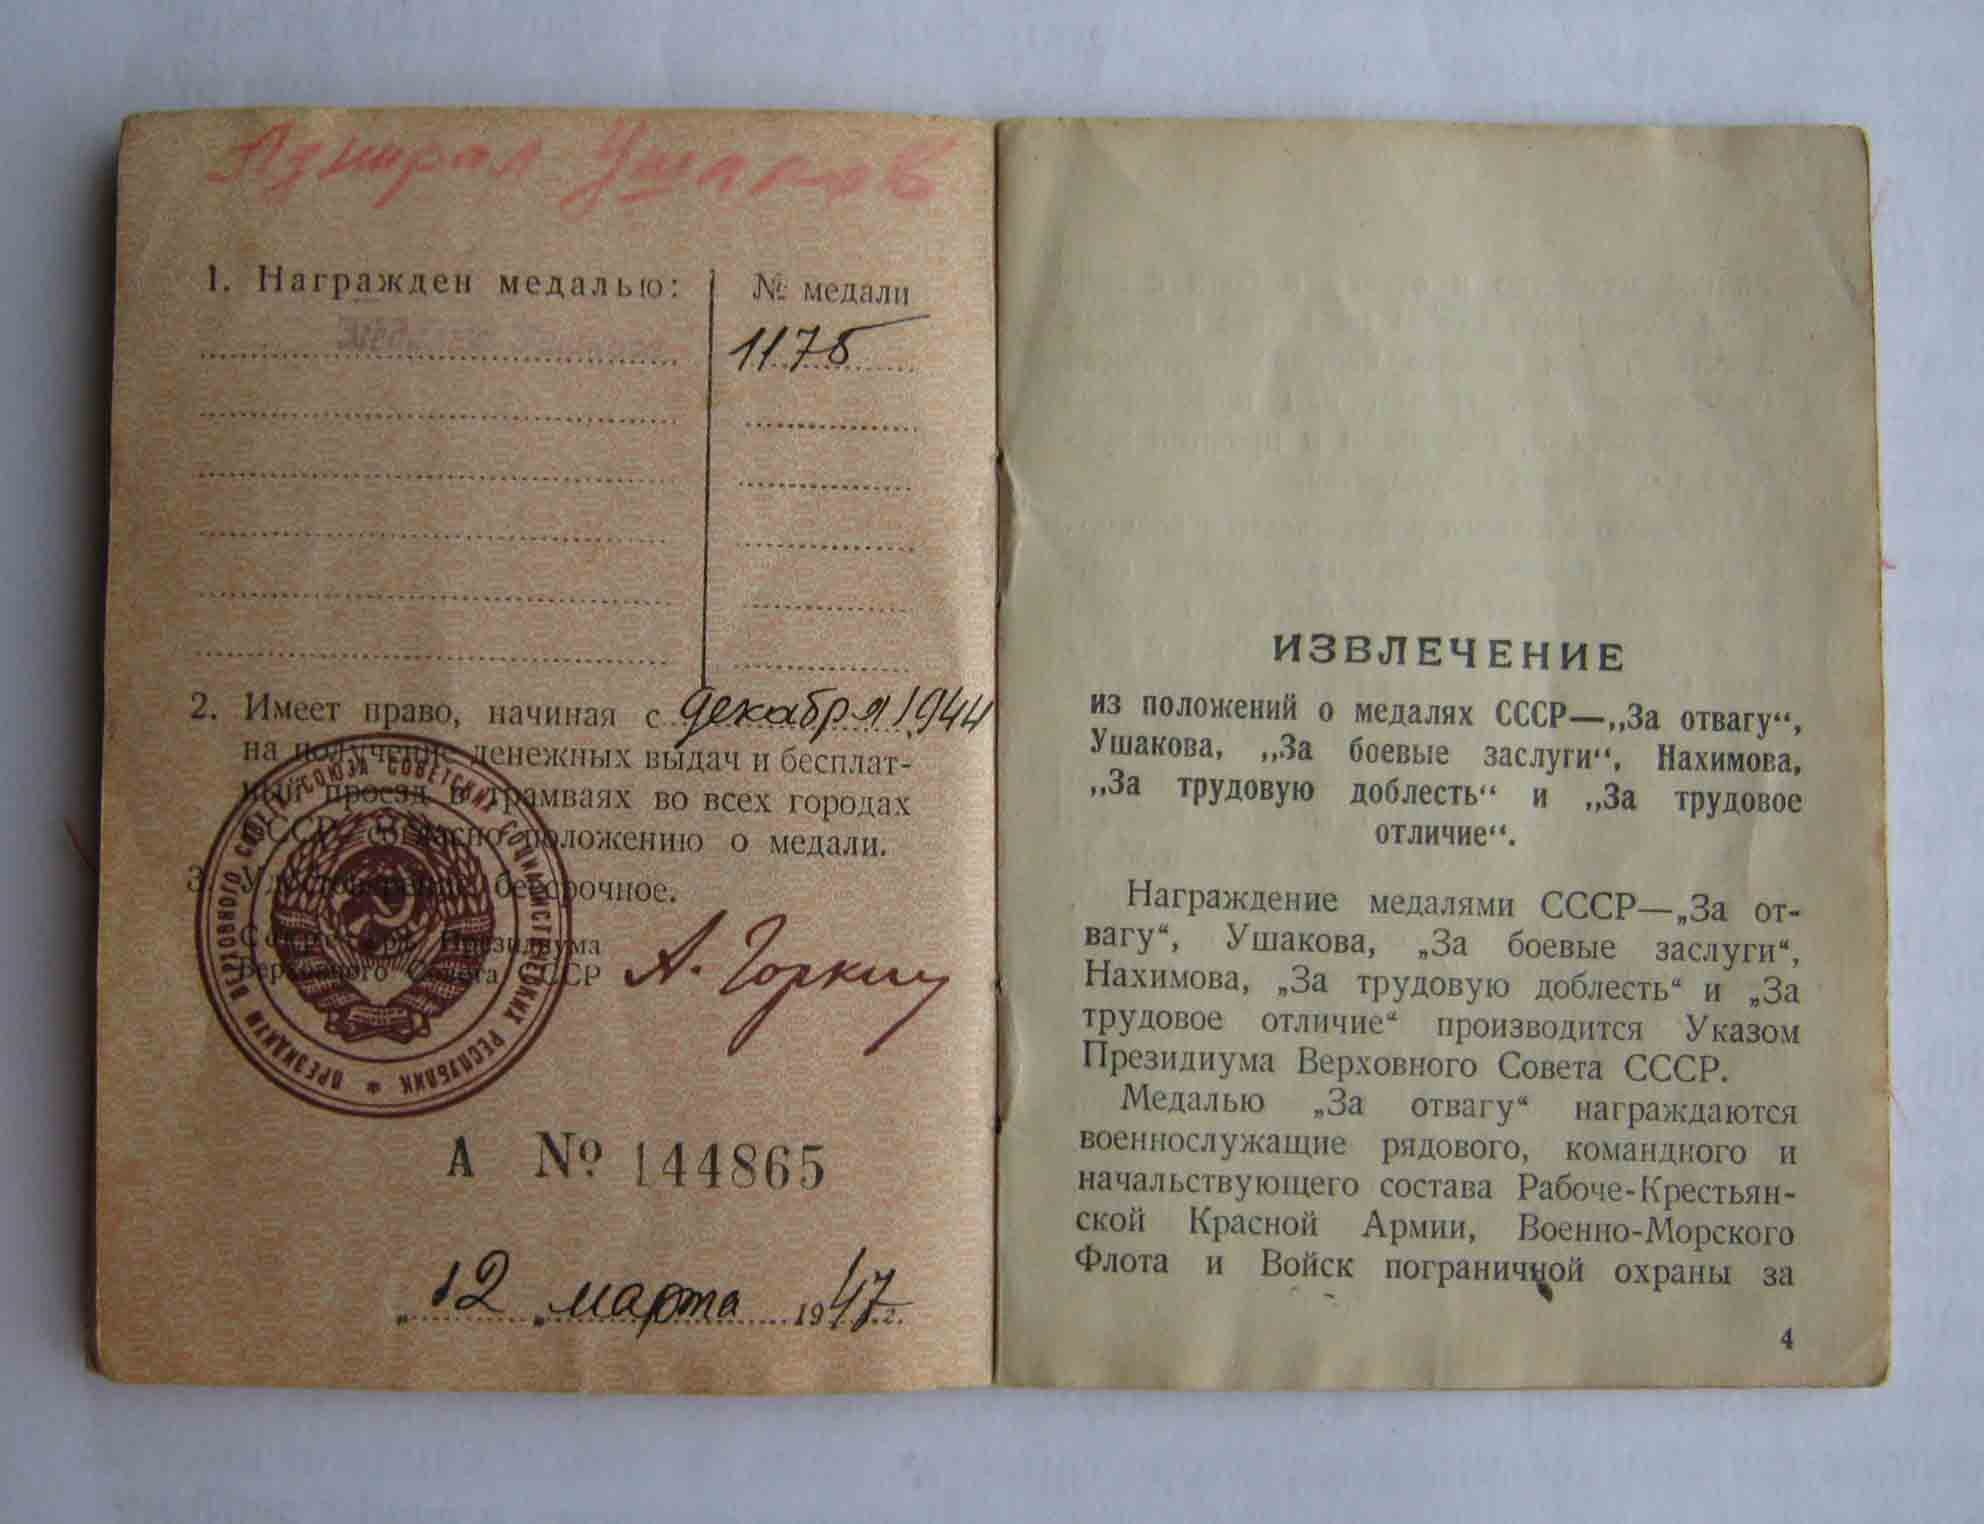 Адмирал Ушаков
1. Награжден медалью:
№ медали
1175
2. Имеет право, начиная с декабря 1944
на получение денежных выдач и бесплат-
ный проезд в трамваях во всех городах
СССР согласно положению о медали.
3. Удостоверение бессрочное.
Секретарь Президиума
Верховного Совета СССР А. Горкин
ПРЕЗИДИУМ ВЕРХОВНОГО СОВЕТА СОЮЗА СОВЕТСКИХ СОЦИАЛИСТИЧЕСКИХ РЕСПУБЛИК *
А № 144865
„12 „ марта 1947 г.
ИЗВЛЕЧЕНИЕ
из положений о медалях СССР—„За отвагу“,
Ушакова, „За боевые заслуги“, Нахимова,
„За трудовую доблесть“ и „За трудовое
отличие“.
Награждение медалями СССР—„За от-
вагу“, Ушакова, „За боевые заслуги“,
Нахимова, „За трудовую доблесть“ и „За
трудовое отличие“ производится Указом
Президиума Верховного Совета СССР.
Медалью „За отвагу“ награждаются
военнослужащие рядового, командного и
начальствующего состава Рабоче-Крестьян-
ской Красной Армии, Военно-Морского
Флота и Войск пограничной охраны за
4